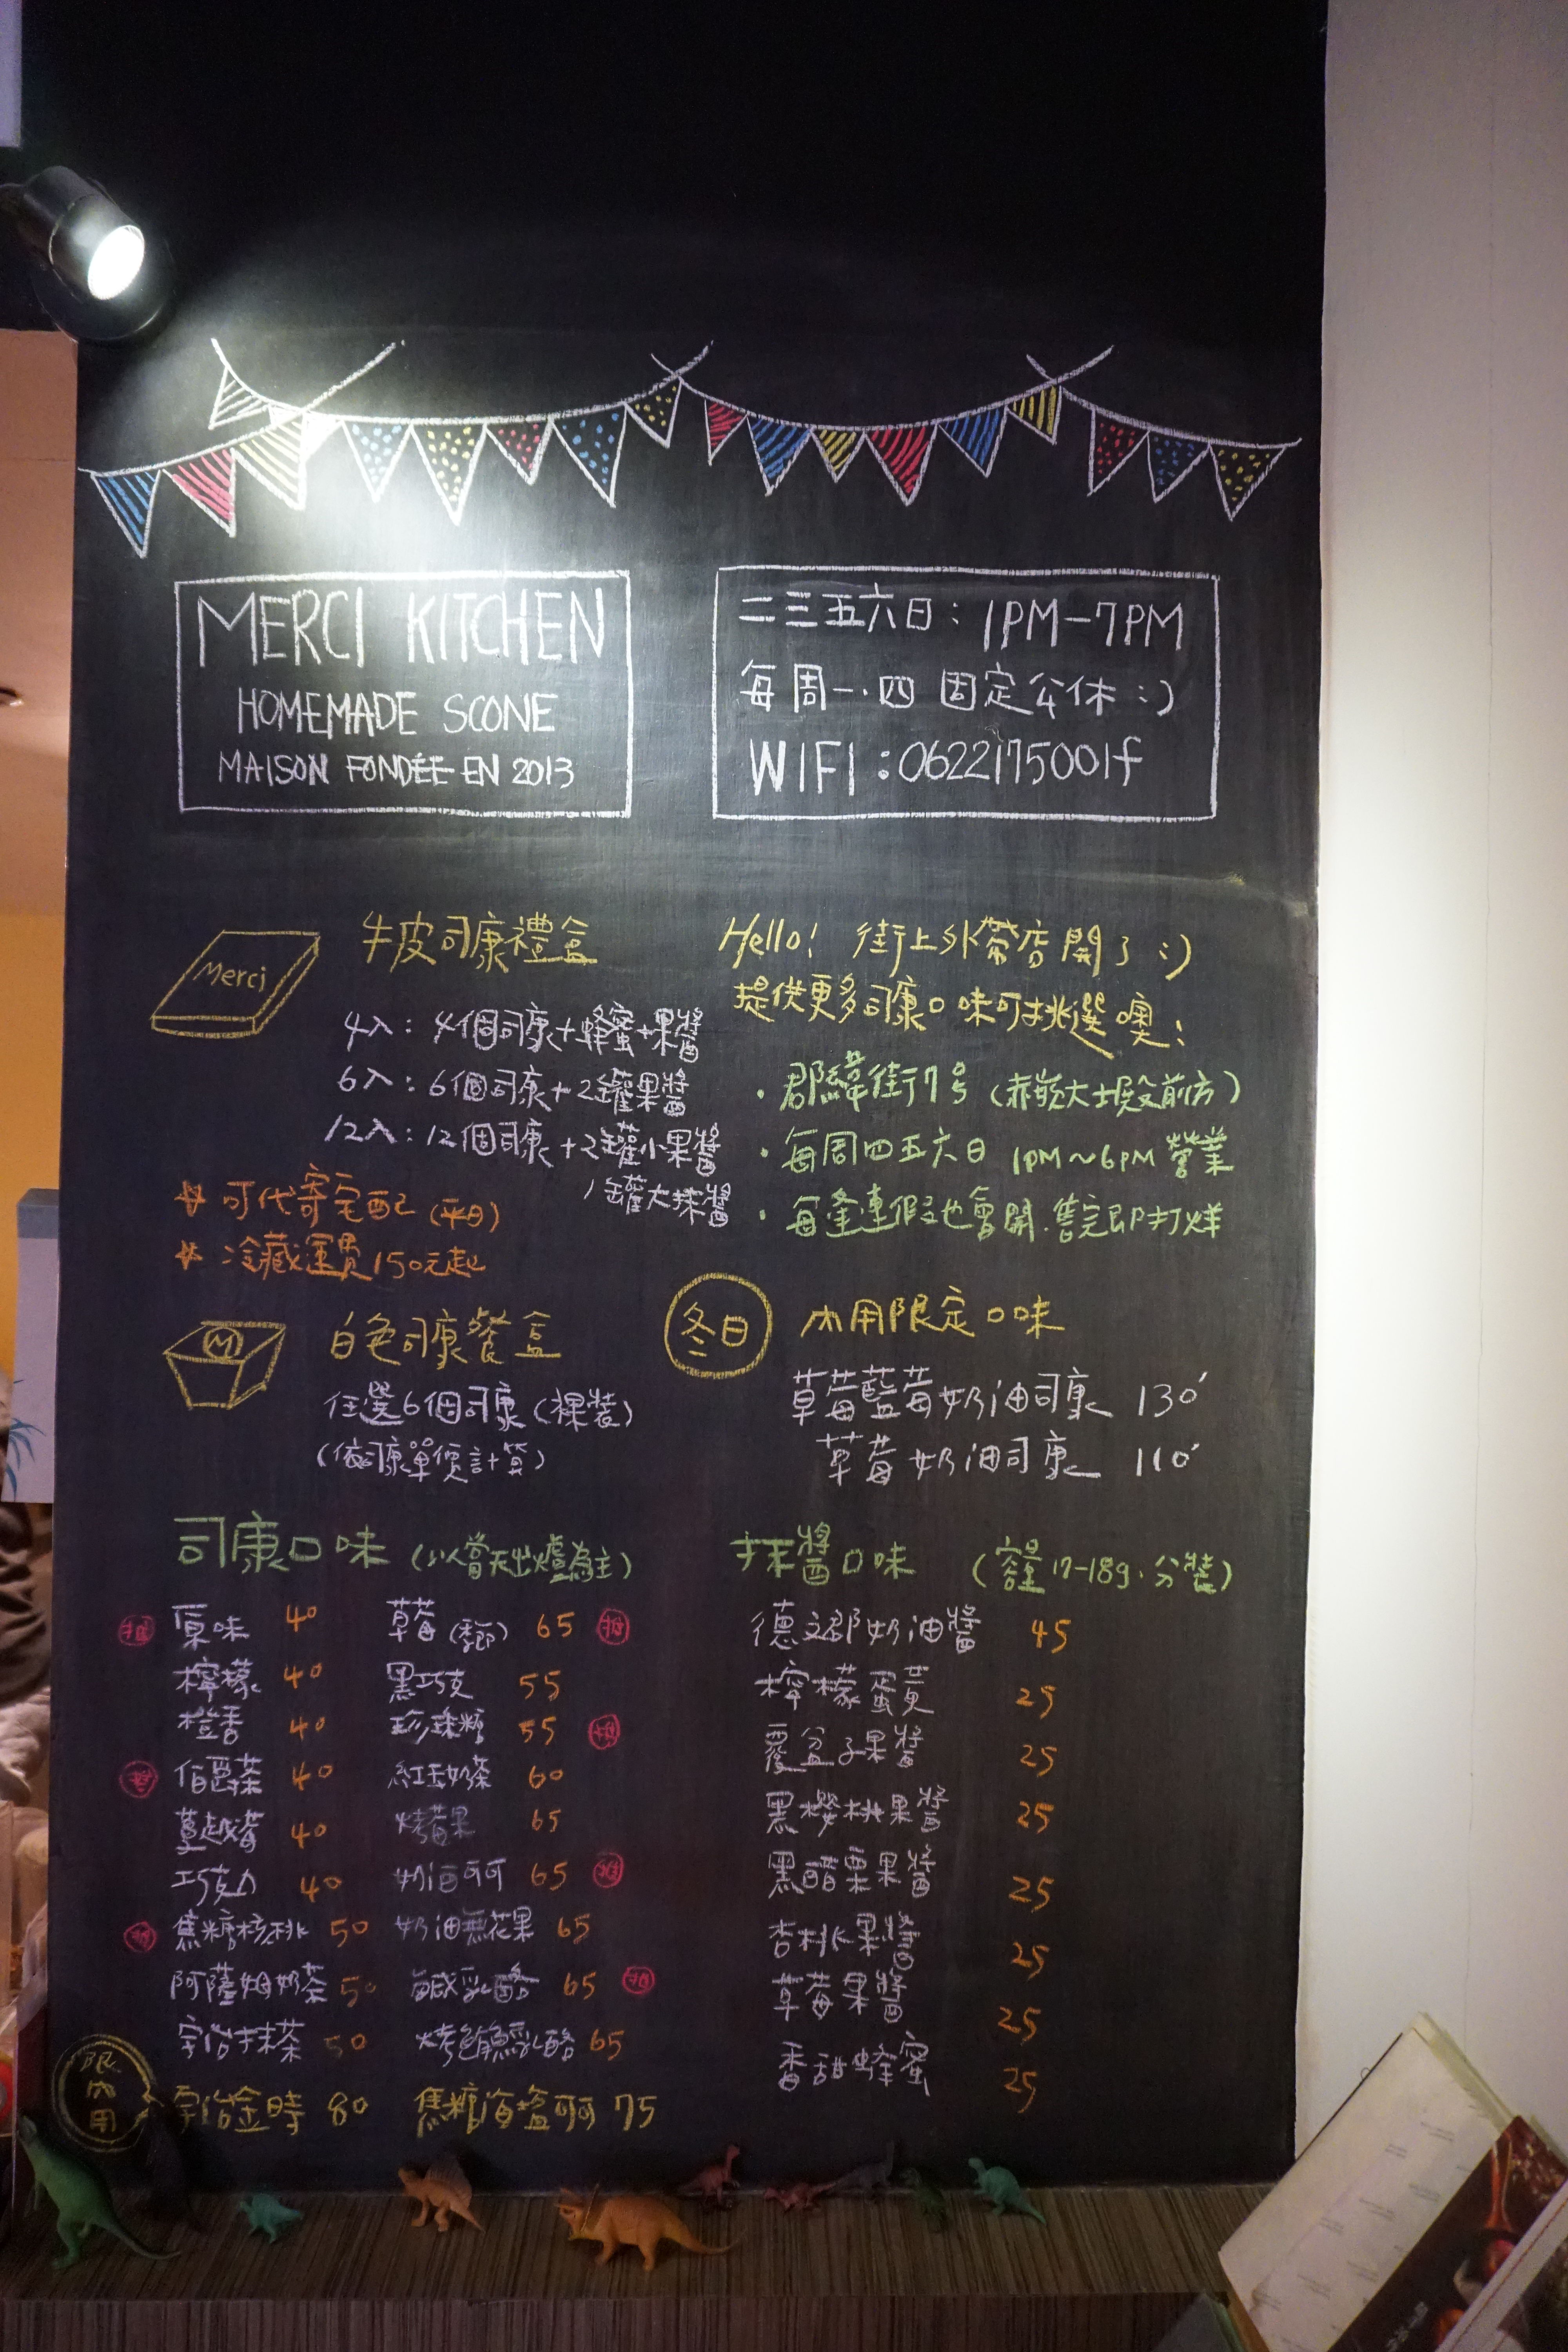 MERCI KITCHEN
HOMEMADE SCONE
MAISON FONDÉE EN 2013
二三五六日：1PM－7PM
每周一.四 固定公休：)
WIFI：0622175001f
Merci
牛皮司康禮盒
4入：4個司康+蜂蜜+果醬
6入：6個司康+2罐果醬
12入：12個司康+2罐小果醬
1罐大抹醬
可代寄宅配(平日)
冷藏運費150元起
Hello! 街上外帶店開了：)
提供更多司康口味可挑選噢！
・郡緯街7号（赤嵌大士殿前方）
・每周四五六日 1PM～6PM 營業
・每逢連假也會開.售完即打烊
M
白色司康餐盒
任選6個司康(裸裝)
(依司康單價計算)
冬日
內用限定口味
草莓藍莓奶油司康 130
草莓奶油司康 110
司康口味（以當天出爐為主）
推 原味 40 草莓(季節) 65 推
檸檬 40 黑巧克 55
橙香 40 珍珠糖 55 推
推 伯爵茶 40 紅玉奶茶 60
蔓越莓 40 烤莓果 65
巧克力 40 奶油可可 65 推
推 焦糖核桃 50 奶油無花果 65
阿薩姆奶茶 50 鹹乳酪 65 推
宇治抹茶 50 烤鮪魚乳酪 65
限內用
宇治金時 80 焦糖海塩可可 75
抹醬口味（容量17-18g.分裝）
德文郡奶油醬 45
檸檬蛋黃 25
覆盆子果醬 25
黑櫻桃果醬 25
黑醋栗果醬 25
杏桃果醬 25
草莓果醬 25
香甜蜂蜜 25